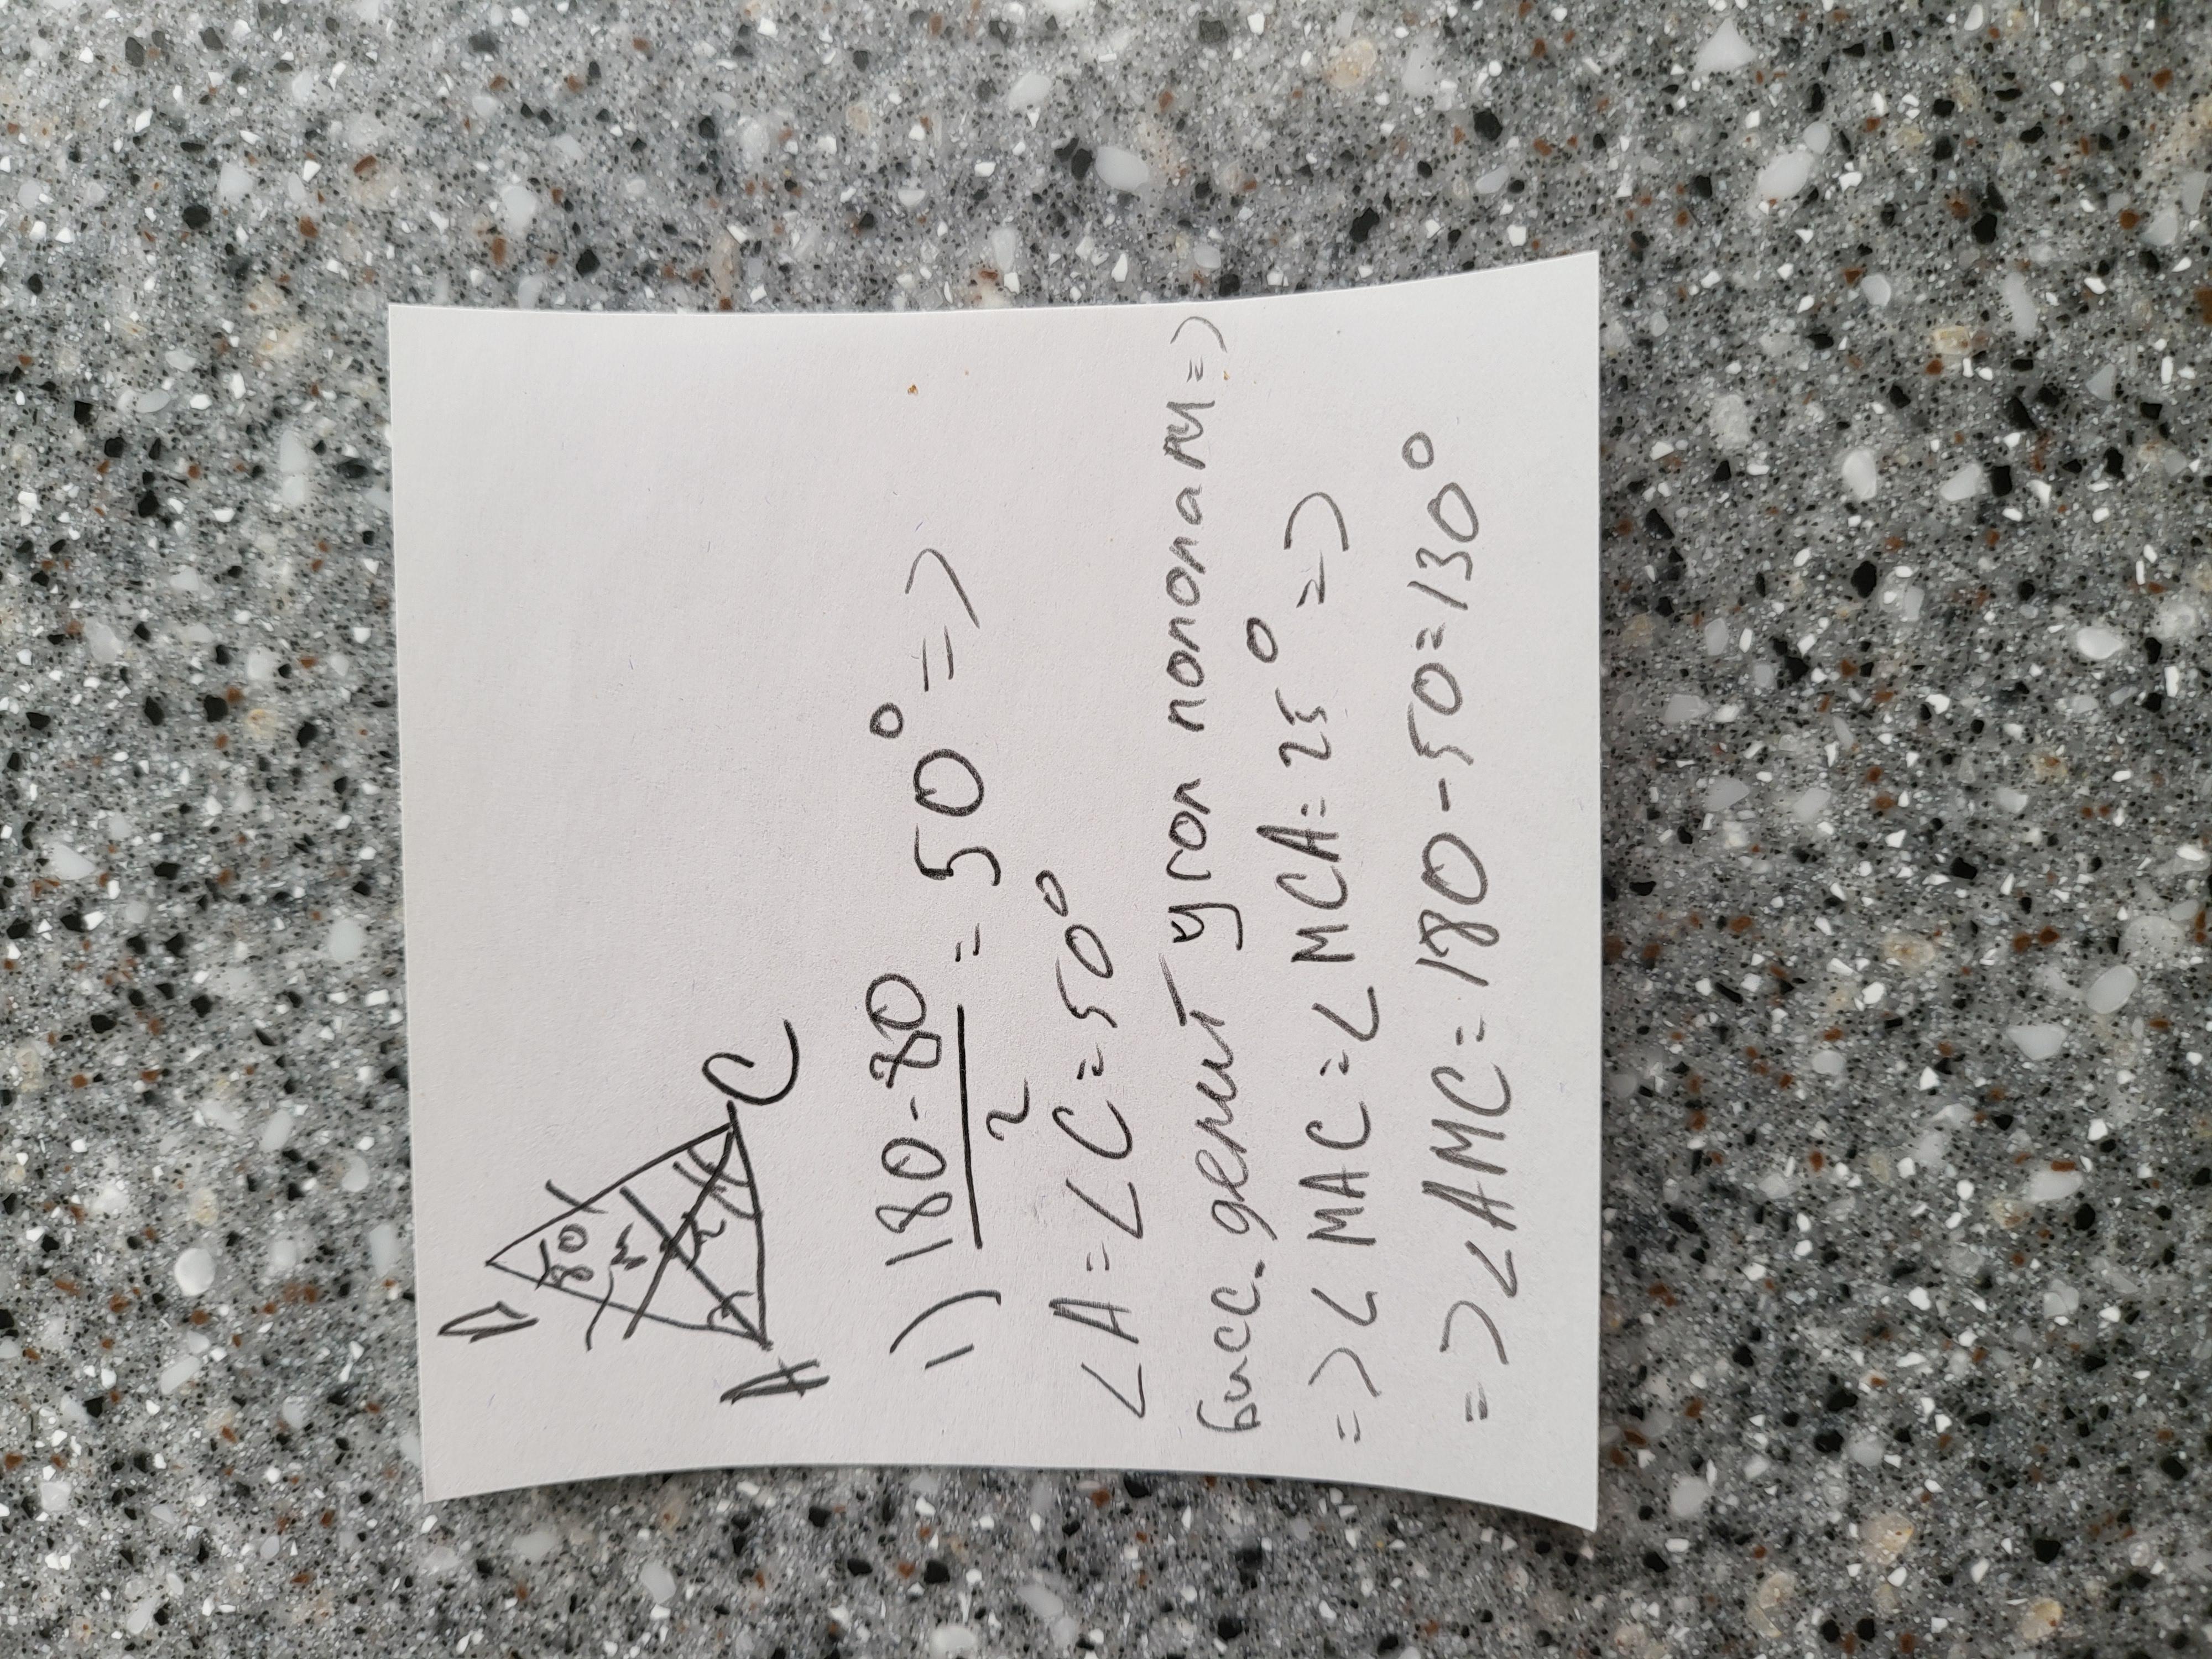 D
80
M
A
C
1) 180-80 / 2 = 50° =>
∠A=∠C=50°
бисс. делит угол пополам=>
=>∠MAC=∠MCA=25° =>
=>∠AMC=180-50=130°